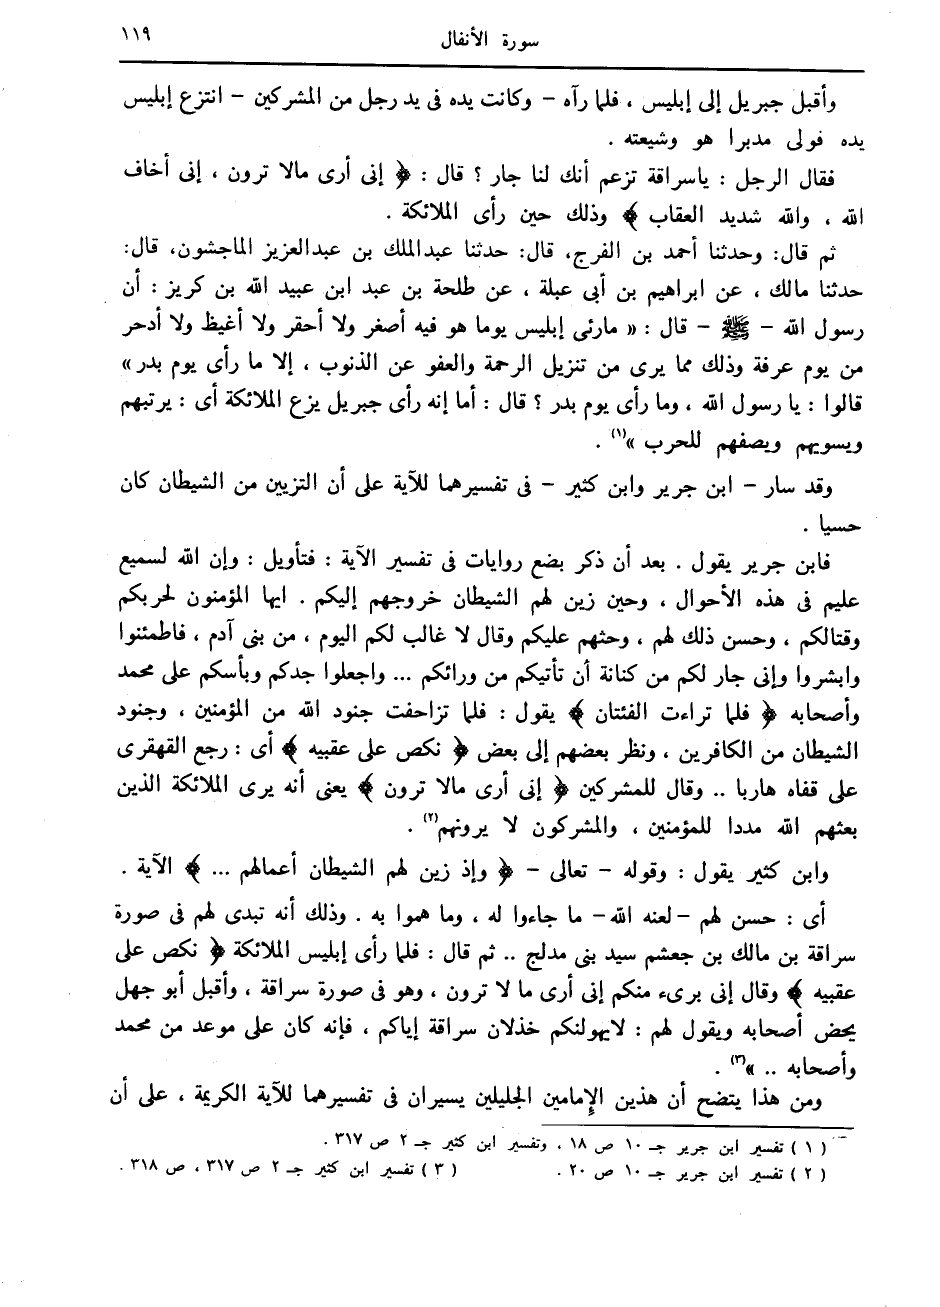 سورة الأنفال ١١٩
وأقبل جبريل إلى إبليس ، فلما رآه – وكانت يده فى يد رجل من المشركين – انتزع إبليس
يده فولى مدبرا هو وشيعته .
فقال الرجل : ياسراقة تزعم أنك لنا جار ؟ قال : ﴿ إنى أرى مالا ترون ، إنى أخاف
الله ، والله شديد العقاب ﴾ وذلك حين رأى الملائكة .
ثم قال: وحدثنا أحمد بن الفرج، قال: حدثنا عبدالملك بن عبدالعزيز الماجشون، قال:
حدثنا مالك ، عن ابراهيم بن أبى عبلة ، عن طلحة بن عبد ابن عبيد الله بن كريز : أن
رسول الله – ﷺ – قال : « مارئى إبليس يوما هو فيه أصغر ولا أحقر ولا أغيظ ولا أدحر
من يوم عرفة وذلك مما يرى من تنزيل الرحمة والعفو عن الذنوب ، إلا ما رأى يوم بدر»
قالوا : يا رسول الله ، وما رأى يوم بدر ؟ قال : أما إنه رأى جبريل يزع الملائكة أى : يرتبهم
ويسويهم ويصفهم للحرب »(١) .
وقد سار – ابن جرير وابن كثير – فى تفسيرهما للآية على أن التزيين من الشيطان كان
حسيا .
فابن جرير يقول . بعد أن ذكر بضع روايات فى تفسير الآية : فتأويل : وإن الله لسميع
عليم فى هذه الأحوال ، وحين زين لهم الشيطان خروجهم إليكم . ايها المؤمنون لحربكم
وقتالكم ، وحسن ذلك لهم ، وحثهم عليكم وقال لا غالب لكم اليوم ، من بنى آدم ، فاطمئنوا
وابشروا وإنى جار لكم من كنانة أن تأتيكم من ورائكم ... واجعلوا جدكم وبأسكم على محمد
وأصحابه ﴿ فلما تراءت الفئتان ﴾ يقول : فلما تزاحفت جنود الله من المؤمنين ، وجنود
الشيطان من الكافرين ، ونظر بعضهم إلى بعض ﴿ نكص على عقبيه ﴾ أى : رجع القهقرى
على قفاه هاربا .. وقال للمشركين ﴿ إنى أرى مالا ترون ﴾ يعنى أنه يرى الملائكة الذين
بعثهم الله مددا للمؤمنين ، والمشركون لا يرونهم(٢) .
وابن كثير يقول : وقوله – تعالى – ﴿ وإذ زين لهم الشيطان أعمالهم ... ﴾ الآية .
أى : حسن لهم –لعنه الله– ما جاءوا له ، وما هموا به . وذلك أنه تبدى لهم فى صورة
سراقة بن مالك بن جعشم سيد بنى مدلج .. ثم قال : فلما رأى إبليس الملائكة ﴿ نكص على
عقبيه ﴾ وقال إنى برىء منكم إنى أرى ما لا ترون ، وهو فى صورة سراقة ، وأقبل أبو جهل
يحض أصحابه ويقول لهم : لايهولنكم خذلان سراقة إياكم ، فإنه كان على موعد من محمد
وأصحابه .. »(٣) .
ومن هذا يتضح أن هذين الإمامين الجليلين يسيران فى تفسيرهما للآية الكريمة ، على أن
( ١ ) تفسير ابن جرير جـ ١٠ ص ١٨ ، وتفسير ابن كثير جـ ٢ ص ٣١٧ .
( ٢ ) تفسير ابن جرير جـ ١٠ ص ٢٠ . ( ٣ ) تفسير ابن كثير جـ ٢ ص ٣١٧ ، ص ٣١٨ .